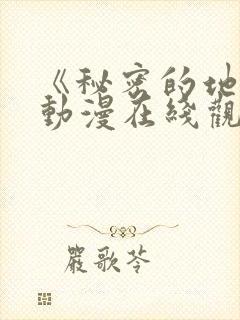 《秘密的地
動漫在綫觀
嚴歌苓